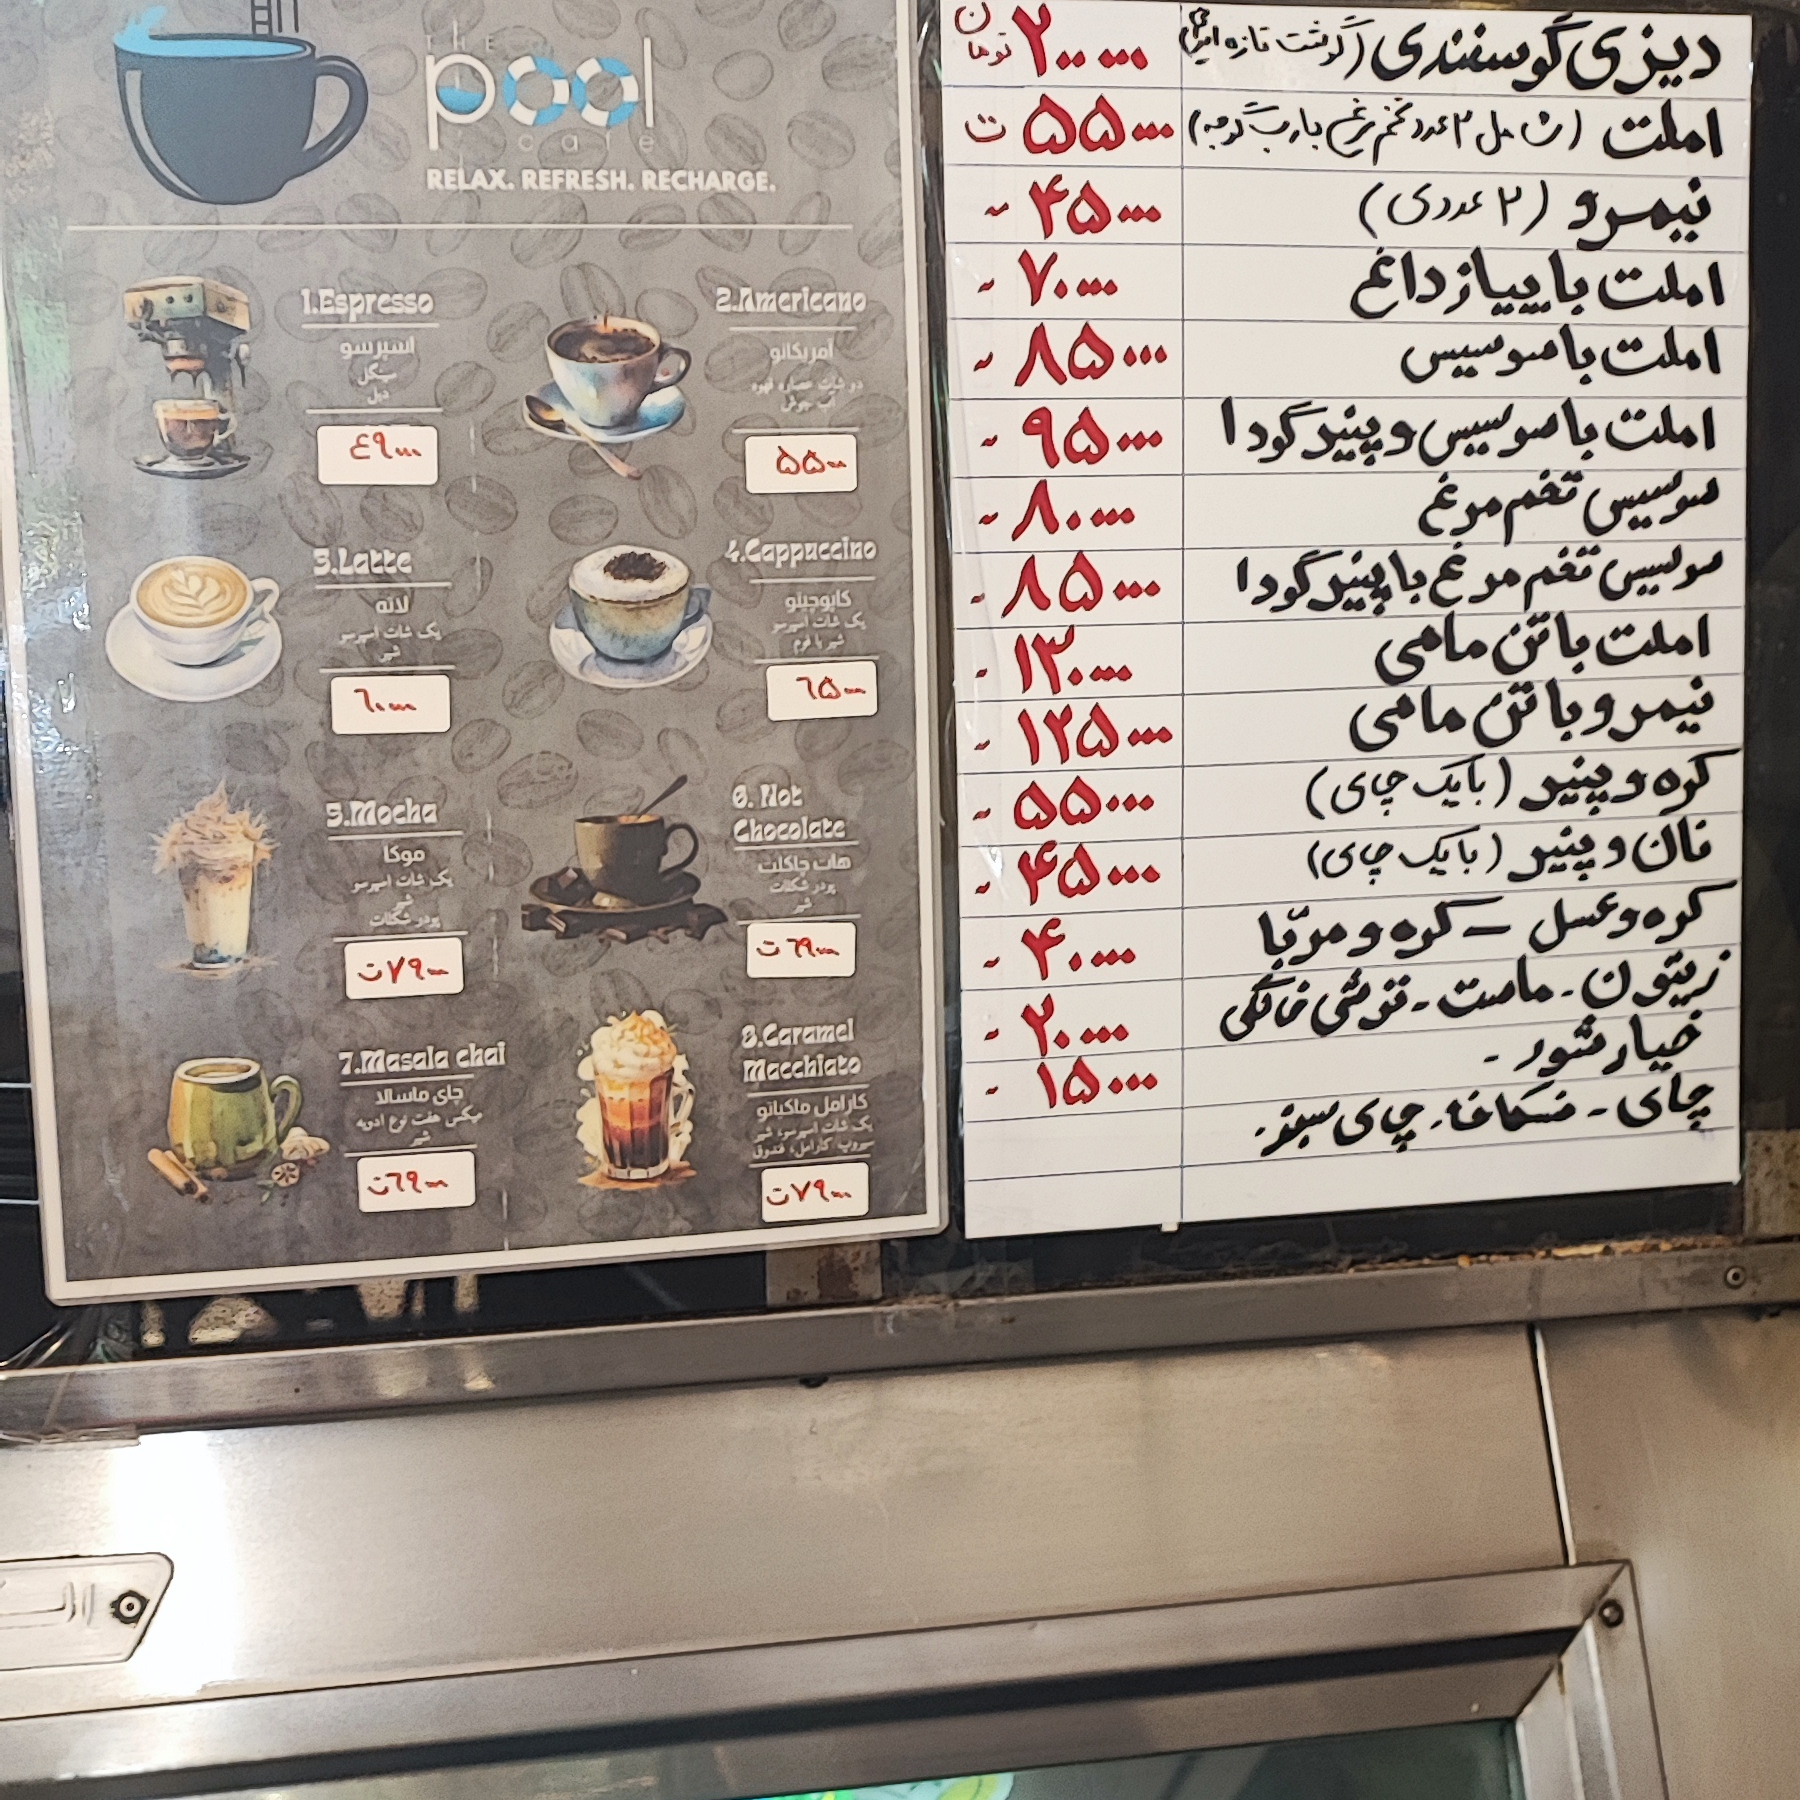 THE
pool
cafe
RELAX. REFRESH. RECHARGE.
1.Espresso
اسپرسو
سینگل
دبل
۴۹۰۰۰
2.Americano
آمریکانو
دو شات عصاره قهوه
آب جوش
۵۵۰۰۰
3.Latte
لاته
یک شات اسپرسو
شیر
۶۰۰۰۰
4.Cappuccino
کاپوچینو
یک شات اسپرسو
شیر با فوم
۶۵۰۰۰
5.Mocha
موکا
یک شات اسپرسو
شیر
پودر شکلات
۷۹۰۰۰ت
6. Hot
Chocolate
هات چاکلت
پودر شکلات
شیر
۶۹۰۰۰ت
7.Masala chai
چای ماسالا
میکس هفت نوع ادویه
شیر
۶۹۰۰۰ت
8.Caramel
Macchiato
کارامل ماکیاتو
یک شات اسپرسو، شیر
سیروپ کارامل، فندوق
۷۹۰۰۰ت
دیزی گوسفندی (گوشت تازه ایرانی) ۲۰۰۰۰۰ تومان
املت (شامل ۲ عدد تخم مرغ با رب گوجه) ۵۵۰۰۰ ت
نیمرو (۲ عددی) ۴۵۰۰۰ -
املت با پیاز داغ ۷۰۰۰۰ -
املت با سوسیس ۸۵۰۰۰ -
املت با سوسیس و پنیر گودا ۹۵۰۰۰ -
سوسیس تخم مرغ ۸۰۰۰۰ -
سوسیس تخم مرغ با پنیر گودا ۸۵۰۰۰ -
املت با تن ماهی ۱۳۰۰۰۰ -
نیمرو با تن ماهی ۱۲۵۰۰۰ -
کره و پنیر (با یک چای) ۵۵۰۰۰ -
نان و پنیر (با یک چای) ۴۵۰۰۰ -
کره و عسل - کره و مربّا ۴۰۰۰۰ -
زیتون - ماست - ترشی خانگی ۲۰۰۰۰ -
خیارشور -
چای - نسکافه. چای سبز. ۱۵۰۰۰ -